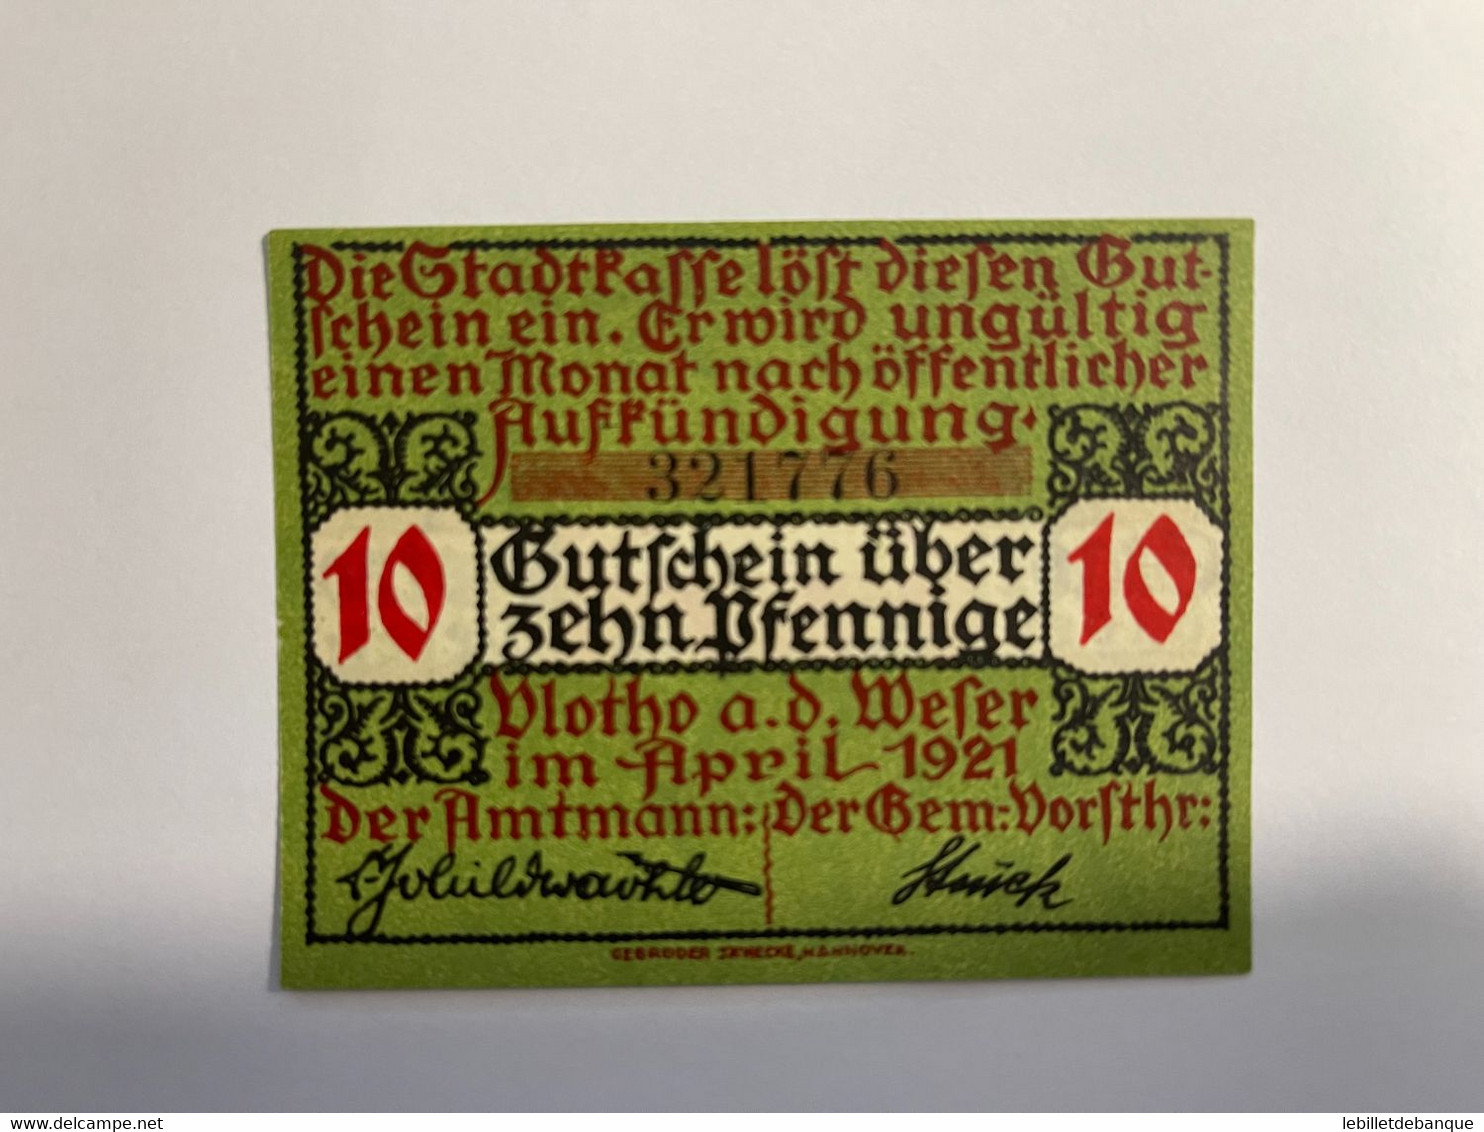 Die Stadtkasse löst diesen Gut-
schein ein. Er wird ungültig
einen Monat nach öffentlicher
Aufkündigung.
321776
10 Gutschein über 10
zehn Pfennige
Vlotho a.d. Weser
im April 1921
Der Amtmann: Der Gem: Vorsthr:
Stück
GEBRÜDER JÄNECKE, HANNOVER.
www.delcampe.net
lebilletdebanque